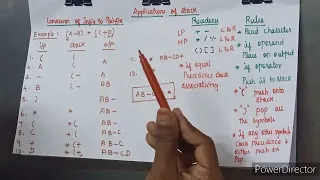 Applications of Stack
Conversion of Infix to Postfix
Example: (A-B) * (C+D)
I/P Stack O/P
1. ( (
2. A ( A
3. - (- A
4. B (- AB
5. ) AB-
6. * * AB-
7. ( *( AB-
8. C *( AB-C
9. + *(+ AB-C
10. D *(+ AB-CD
11. ) * AB-CD+
12.
AB-CD+*
* if equal
Precedence check
associativity
Precedence
LP + - L to R
HP * / % L to R
( ) { } L to R
Rules
* Read character
* if operand
Place on output
* if operator
Push on to stack
* "(" push onto
Stack
* ")" pop all
the symbols
* if any other symbol
Check precedence &
either push or
Pop.
PowerDirector